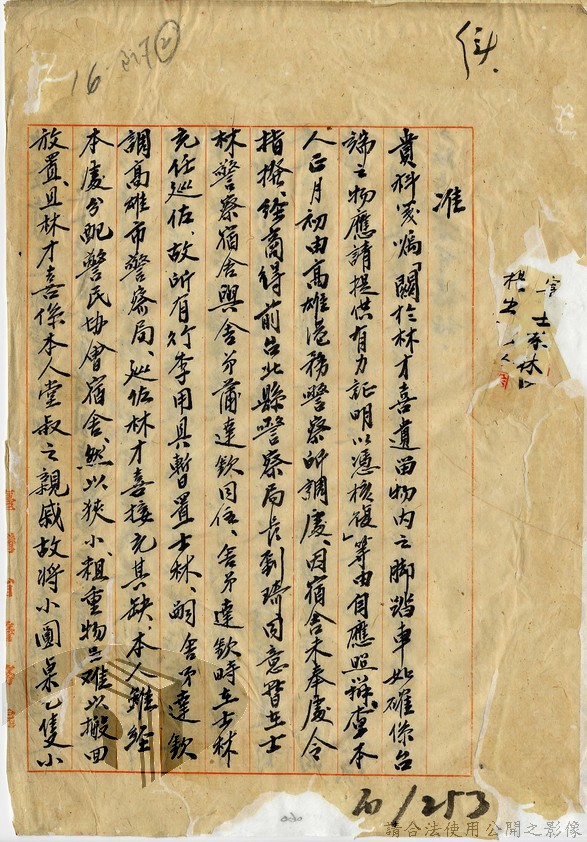 准
貴科箋焗「關於林才喜遺留物內之脚踏車如確係台
端之物應請提供有力証明以憑核復」等由自應照辦、查本
人正月初由高雄港務警察所調處、因宿舍未奉處令
指撥、經商得前台北縣警察局長劉琦同意暫在士
林警察宿舍與舍弟蒲達欽同住、舍弟達欽時在士林
充任巡佐、故所有行李用具暫置士林、嗣舍弟達欽
調高雄市警察局、巡佐林才喜接充其缺、本人雖經
本處分配警民協會宿舍、然以狹小、粗重物品難以搬回
放置、且林才喜係本人堂叔之親戚故將小圓桌乙隻小
臺灣省警務處
16
②
060
/253
請合法使用公開之影像